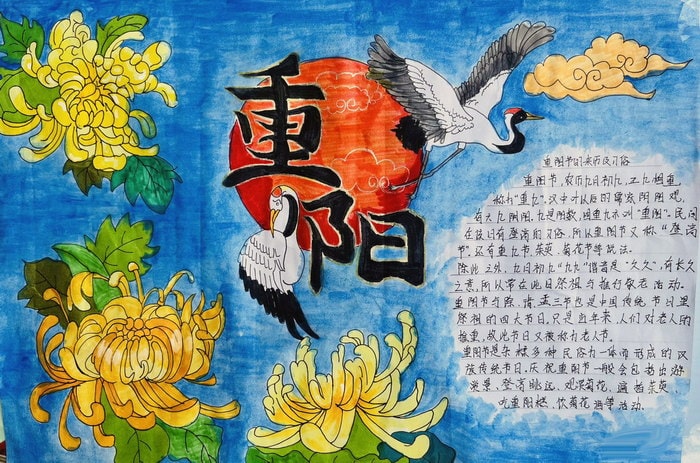 重阳
重阳节的来历及习俗
重阳节,农历九月初九,二九相重,
称为"重九",汉中叶以后的儒家阴阳观,
有六阴九阳,九是阳数,固重九亦叫"重阳"。民间
在该日有登高的习俗,所以重阳节又称"登高
节"。还有重九节、茱萸、菊花节等说法。
除此之外,九月初九"九九"谐音是"久久",有长久
之意,所以常在此日祭祖与推行敬老活动。
重阳节与除、清、盂三节也是中国传统节日里
祭祖的四大节日。只是近年来,人们对老人的
推重,故此节日又被称为老人节。
重阳节是杂糅多种民俗为一体而形成的汉
族传统节日。庆祝重阳节一般会包括出游
赏景、登高眺远、观赏菊花、遍插茱萸、
吃重阳糕、饮菊花酒等活动。